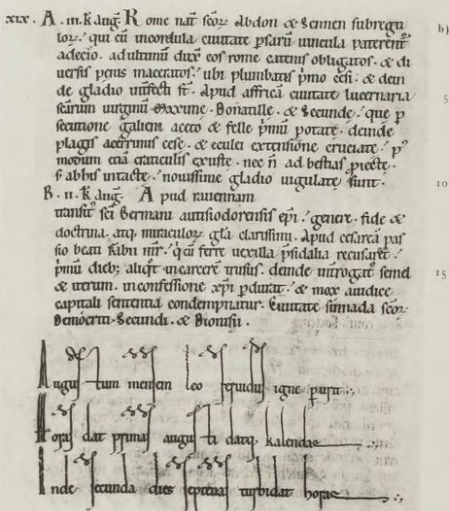 xix. A .iii. k̄ aug̅. Rome nat̅ scōꝝ Abdon & Sennen subregu
loꝝ. qui cū in cordula ciuitate psarū uincula paterent̅
a decio. ad ultimū duxē eos rome catenis obligatos. & di
uersis penis maceratos. ubi plumbatis p̅mo cesi. & dein
de gladio infecti st̅. Apud affricā ciuitate lucernaria
scārum uirginū Maxime. Donatille. & Secunde. que ꝑ
secutione galieni aceto & felle p̅mū potate. deinde
plagis acerrimis cese. & eculei extensione cruciate. p̅
modum etiā craticulis exuste. nec n̅ ad bestias ꝓiecte
s; ab his intacte. nouissime gladio iugulate sunt.
B. .ii. k̄ aug̅. Apud rauennam
transit̅ sc̅i Germani autisiodorensis ep̅i. genere. fide &
doctrina. atq; miraculoꝝ gl̅a clarissimi. Apud cesareā pas
sio beati Fabii mr̅. qui ferre uexilla p̅sidalia recusaret.
p̅mū dieb; aliqt̅ in carcere trusus. deinde int̅rogat̅ semel
& iterum. in confessione xp̅i ꝑdurat. & mox a iudice
capitali sententia condempnatur. Ciuitate sinnada scōꝝ
Democriti. Secundi. & Dionisii.
b)
5
10
15
Augustum mensem leo feruidus igne ꝑurit
Horas dat primas augusti datq; kalendae
Inde secunda dies septenas turbidat horas